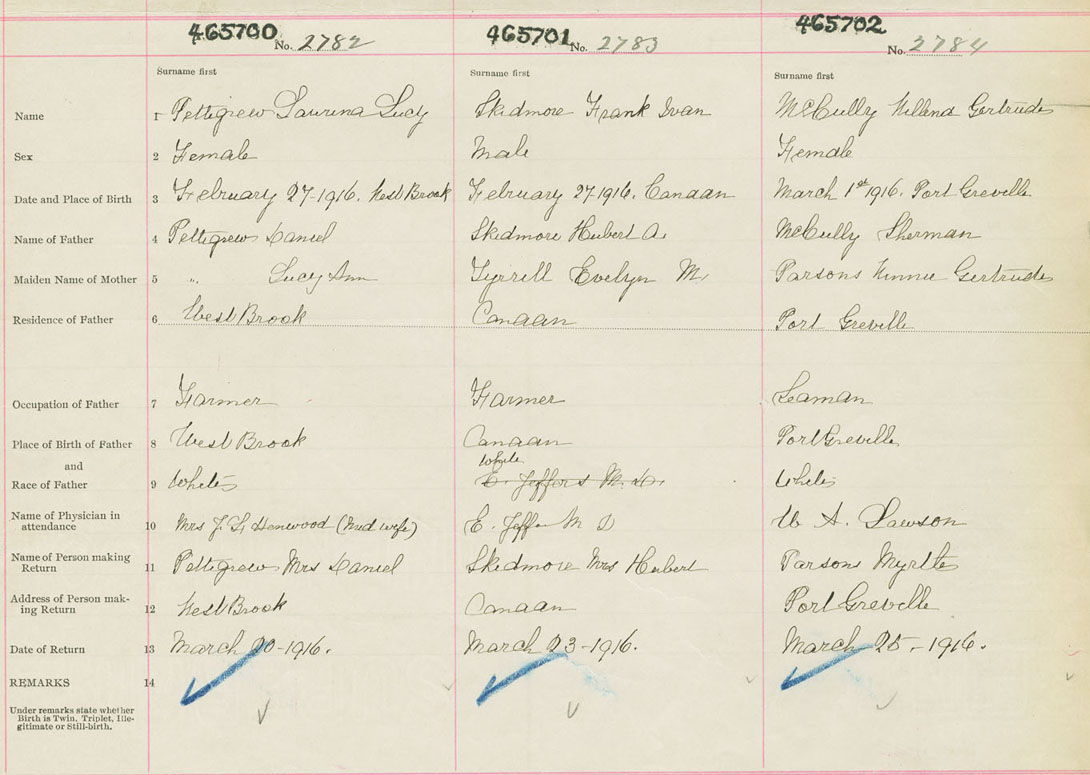 465700 No. 2782 465701 No. 2783 465702 No. 2784
Surname first Surname first Surname first
Name 1 Pettigrew Laurina Lucy Skidmore Frank Ivan McCully Gertrude
Sex 2 Female Male Female
Date and Place of Birth 3 February 27-1916. West Brook February 27-1916. Canaan March 1st 1916. Port Greville.
Name of Father 4 Pettigrew Daniel Skidmore Hubert A. McCully Sherman
Maiden Name of Mother 5 " Lucy Ann Tyrrell Evelyn M. Parsons Gertrude
Residence of Father 6 West Brook Canaan Port Greville
Occupation of Father 7 Farmer Farmer Seaman
Place of Birth of Father 8 West Brook Canaan Port Greville
and
White
Race of Father 9 White E. Jeffers M. D. White
Name of Physician in
attendance 10 Mrs J. Henwood (Mid wife) E. Jeffers M D A. Lawson
Name of Person making
Return 11 Pettigrew Mrs Daniel Skidmore Mrs Hubert Parsons Myrtle
Address of Person mak-
ing Return 12 West Brook Canaan Port Greville
Date of Return 13 March 20-1916. March 23-1916. March 25-1916.
REMARKS 14
Under remarks state whether
Birth is Twin, Triplet, Ille-
gitimate or Still-birth.